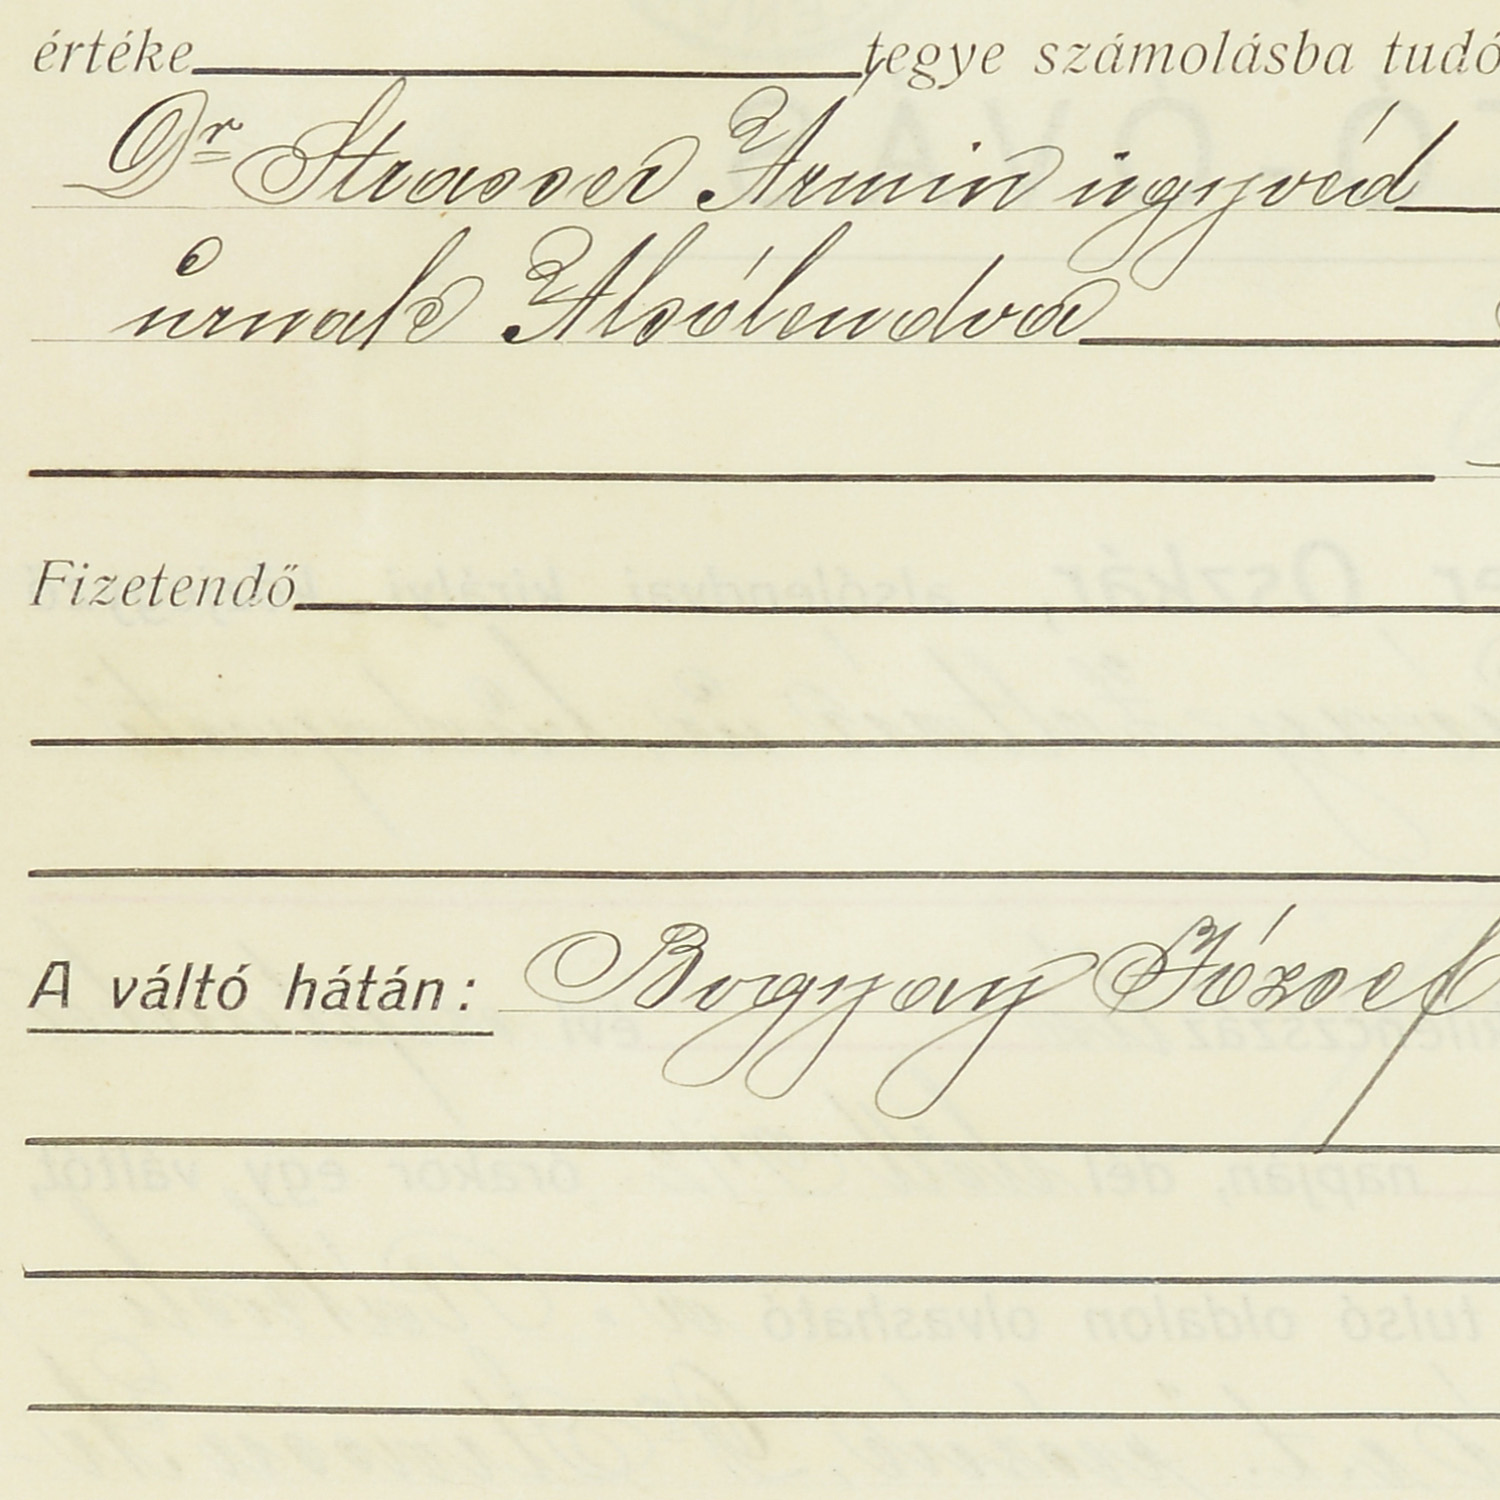 értéke tegye számolásba tudó
Dr Strasser Ármin ügyvéd
úrnak Alsólendva
Fizetendő
A váltó hátán: Bogyay József